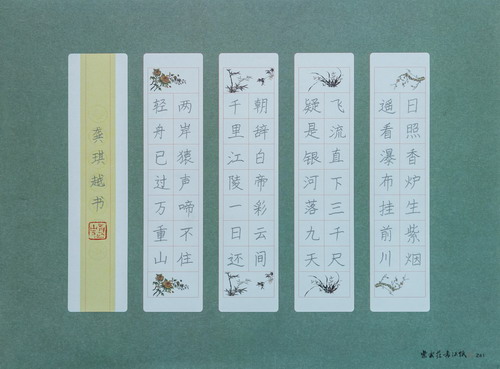 日照香炉生紫烟
遥看瀑布挂前川
飞流直下三千尺
疑是银河落九天
朝辞白帝彩云间
千里江陵一日还
两岸猿声啼不住
轻舟已过万重山
龚琪越书